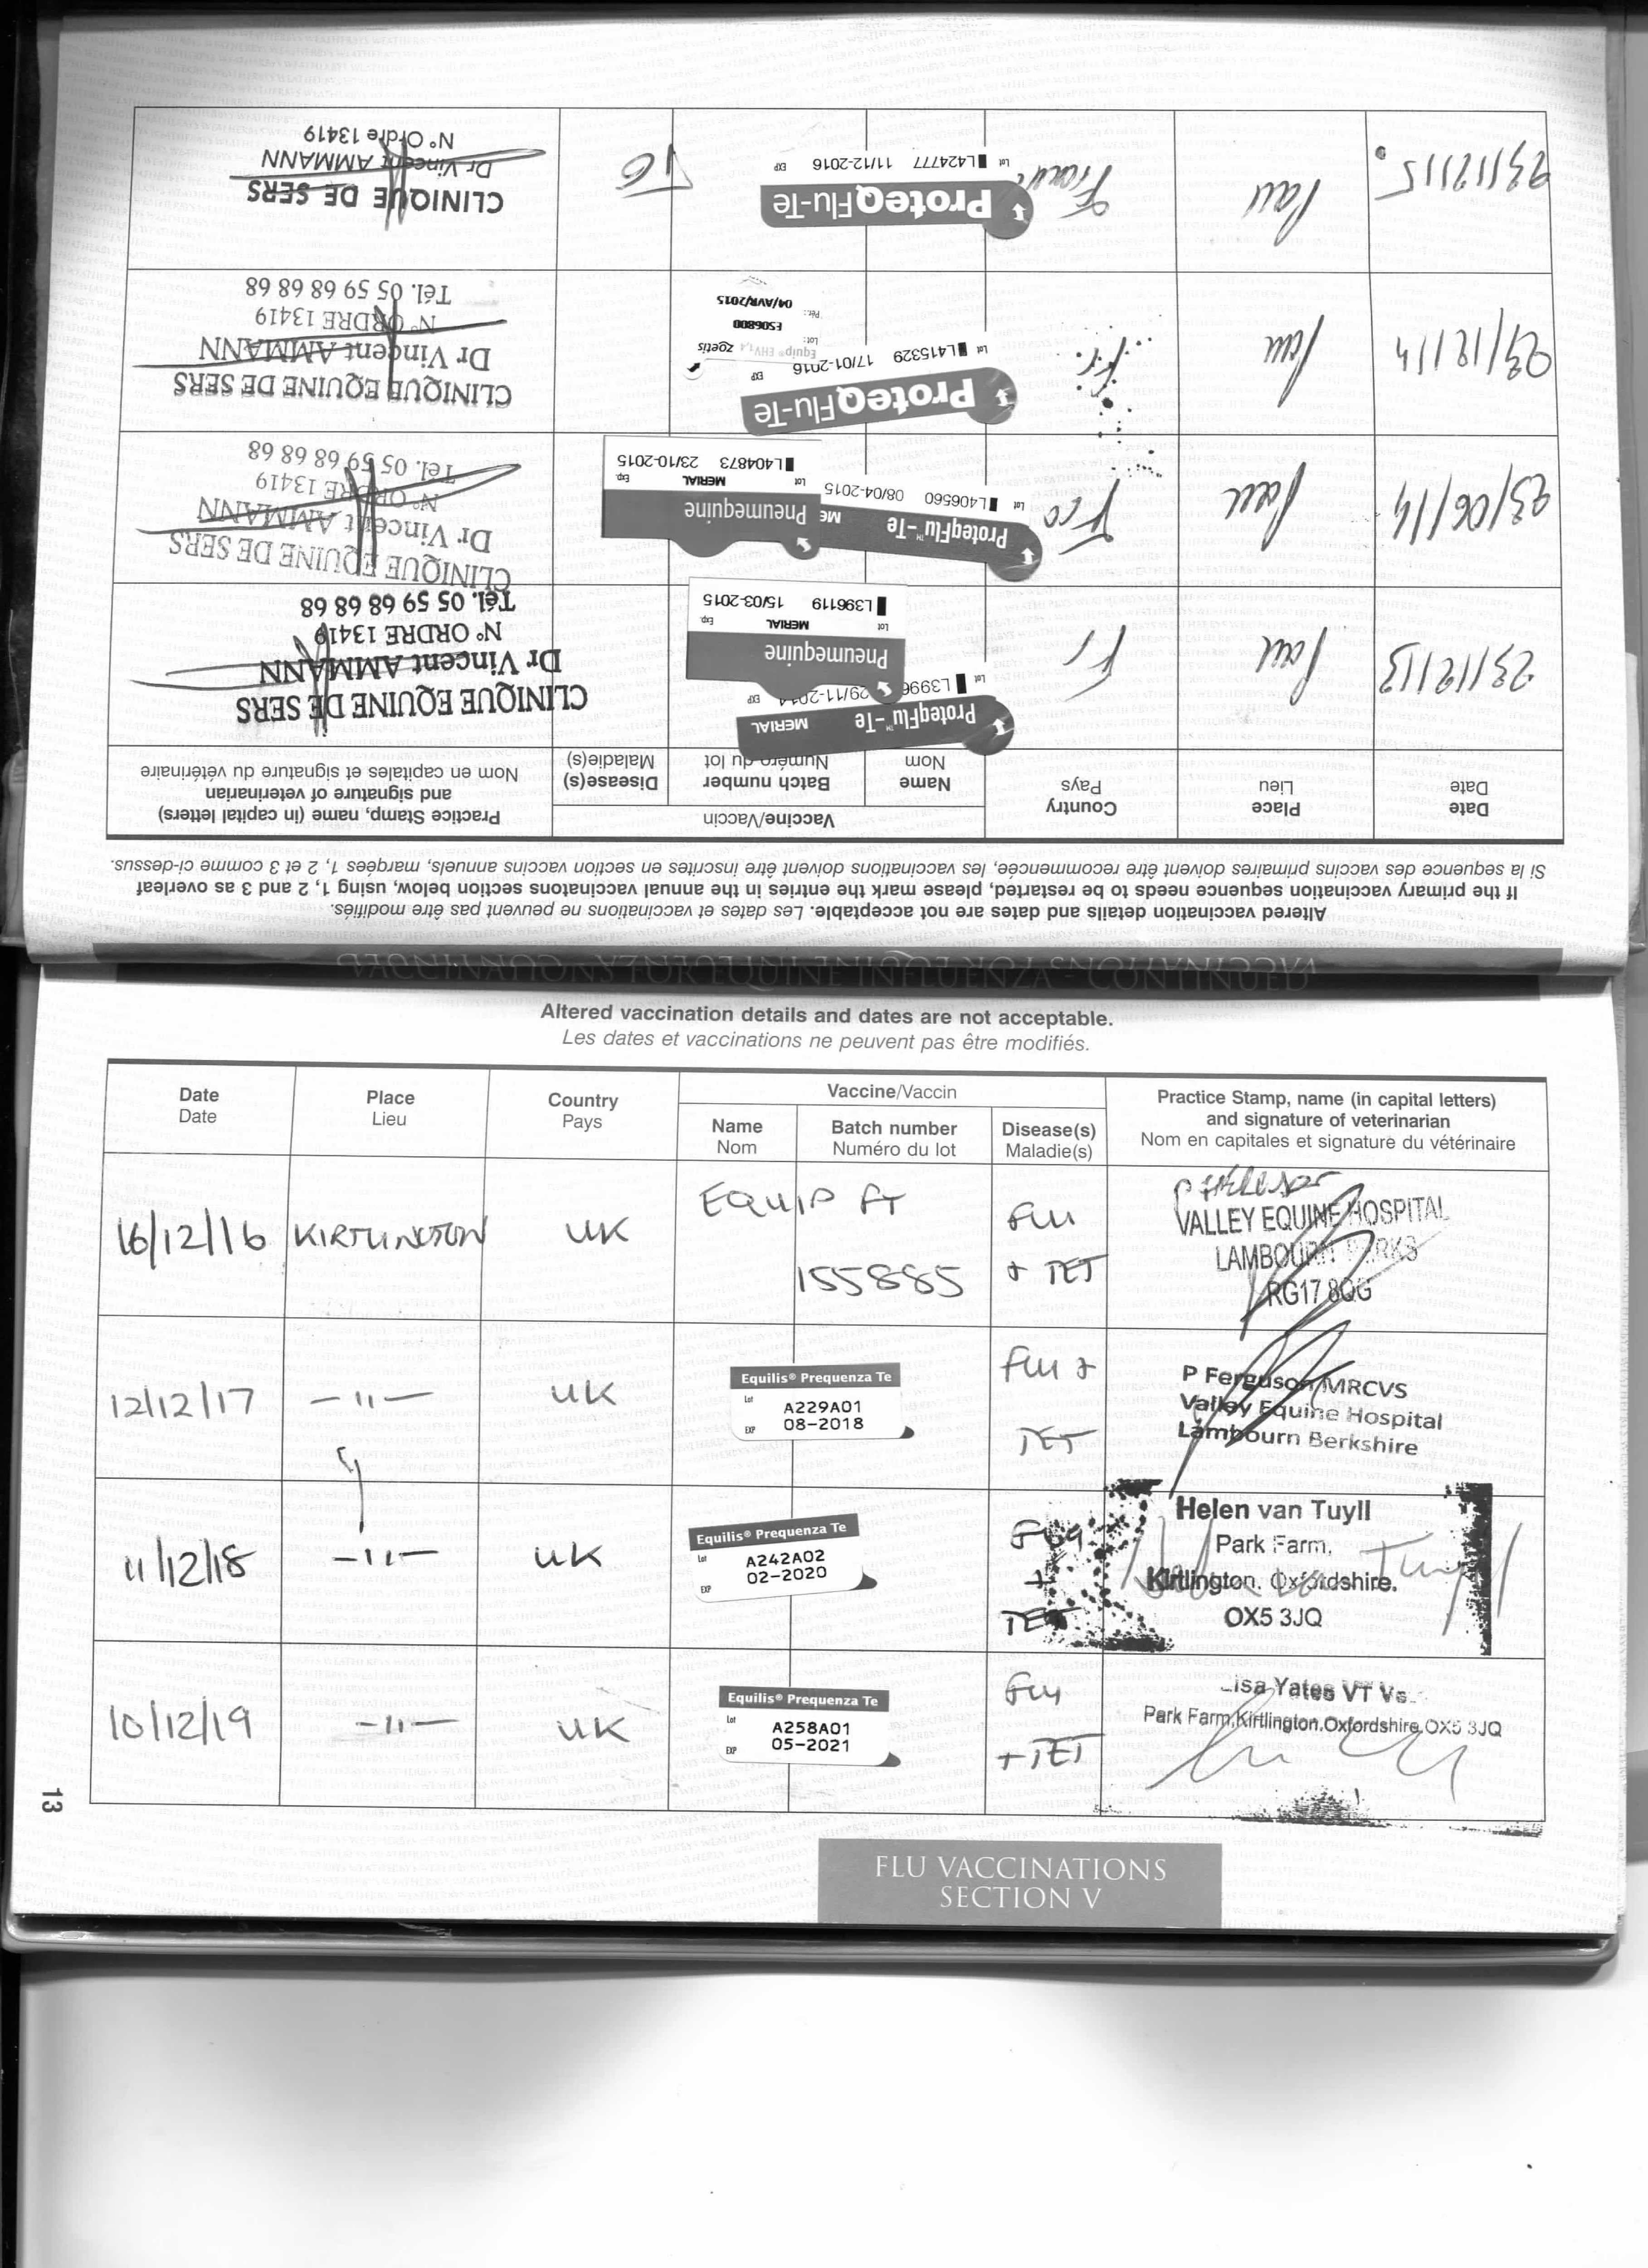 VACCINATIONS FOR EQUINE INFLUENZA - CONTINUED
Altered vaccination details and dates are not acceptable. Les dates et vaccinations ne peuvent pas être modifiés.
If the primary vaccination sequence needs to be restarted, please mark the entries in the annual vaccinatons section below, using 1, 2 and 3 as overleaf
Si la sequence des vaccins primaires doivent être recommencée, les vaccinations doivent être inscrites en section vaccins annuels, marqées 1, 2 et 3 comme ci-dessus.
Date
Date
Place
Lieu
Country
Pays
Vaccine/Vaccin
Name
Nom
Batch number
Numéro du lot
Disease(s)
Maladie(s)
Practice Stamp, name (in capital letters)
and signature of veterinarian
Nom en capitales et signature du vétérinaire
23/12/13
Pau
Fr
ProteqFlu™-Te MERIAL
Lot L3996 29/11-2014 EXP
Pneumequine
Lot MERIAL Exp.
L396119 15/03-2015
CLINIQUE EQUINE DE SERS
Dr Vincent AMMANN
N° ORDRE 13419
Tél. 05 59 68 68 68
23/06/14
Pau
ProteqFlu™-Te ME
Lot L406560 08/04-2015
Pneumequine
Lot MERIAL Exp.
L404873 23/10-2015
CLINIQUE EQUINE DE SERS
Dr Vincent AMMANN
N° ORDRE 13419
Tél. 05 59 68 68 68
23/12/14
Pau
Fr.
ProteqFlu-Te
Lot L415329 17/01-2016 EXP
Equip® EHV1,4 zoetis
Lot:
ES06800
Pér.:
04/AVR/2015
CLINIQUE EQUINE DE SERS
Dr Vincent AMMANN
N° ORDRE 13419
Tél. 05 59 68 68 68
23/12/15
Pau
France
ProteqFlu-Te
Lot L424777 11/12-2016 EXP
TG
CLINIQUE DE SERS
Dr Vincent AMMANN
N° Ordre 13419
Altered vaccination details and dates are not acceptable.
Les dates et vaccinations ne peuvent pas être modifiés.
Date
Date
Place
Lieu
Country
Pays
Vaccine/Vaccin
Name
Nom
Batch number
Numéro du lot
Disease(s)
Maladie(s)
Practice Stamp, name (in capital letters)
and signature of veterinarian
Nom en capitales et signature du vétérinaire
16/12/16
KIRTLINGTON
UK
EQUIP FT
155885
Flu
+ TET
VALLEY EQUINE HOSPITAL
LAMBOURN BERKS
RG17 8QG
12/12/17
-11-
UK
Equilis® Prequenza Te
Lot A229A01
EXP 08-2018
Flu +
TET
P Ferguson MRCVS
Valley Equine Hospital
Lambourn Berkshire
11/12/18
-11-
UK
Equilis® Prequenza Te
Lot A242A02
EXP 02-2020
Flu
+
TET
Helen van Tuyll
Park Farm,
Kirtlington, Oxfordshire.
OX5 3JQ
10/12/19
-11-
UK
Equilis® Prequenza Te
Lot A258A01
EXP 05-2021
Flu
+ TET
Lisa Yates VT
Park Farm,Kirtlington,Oxfordshire,OX5 3JQ
13
FLU VACCINATIONS
SECTION V